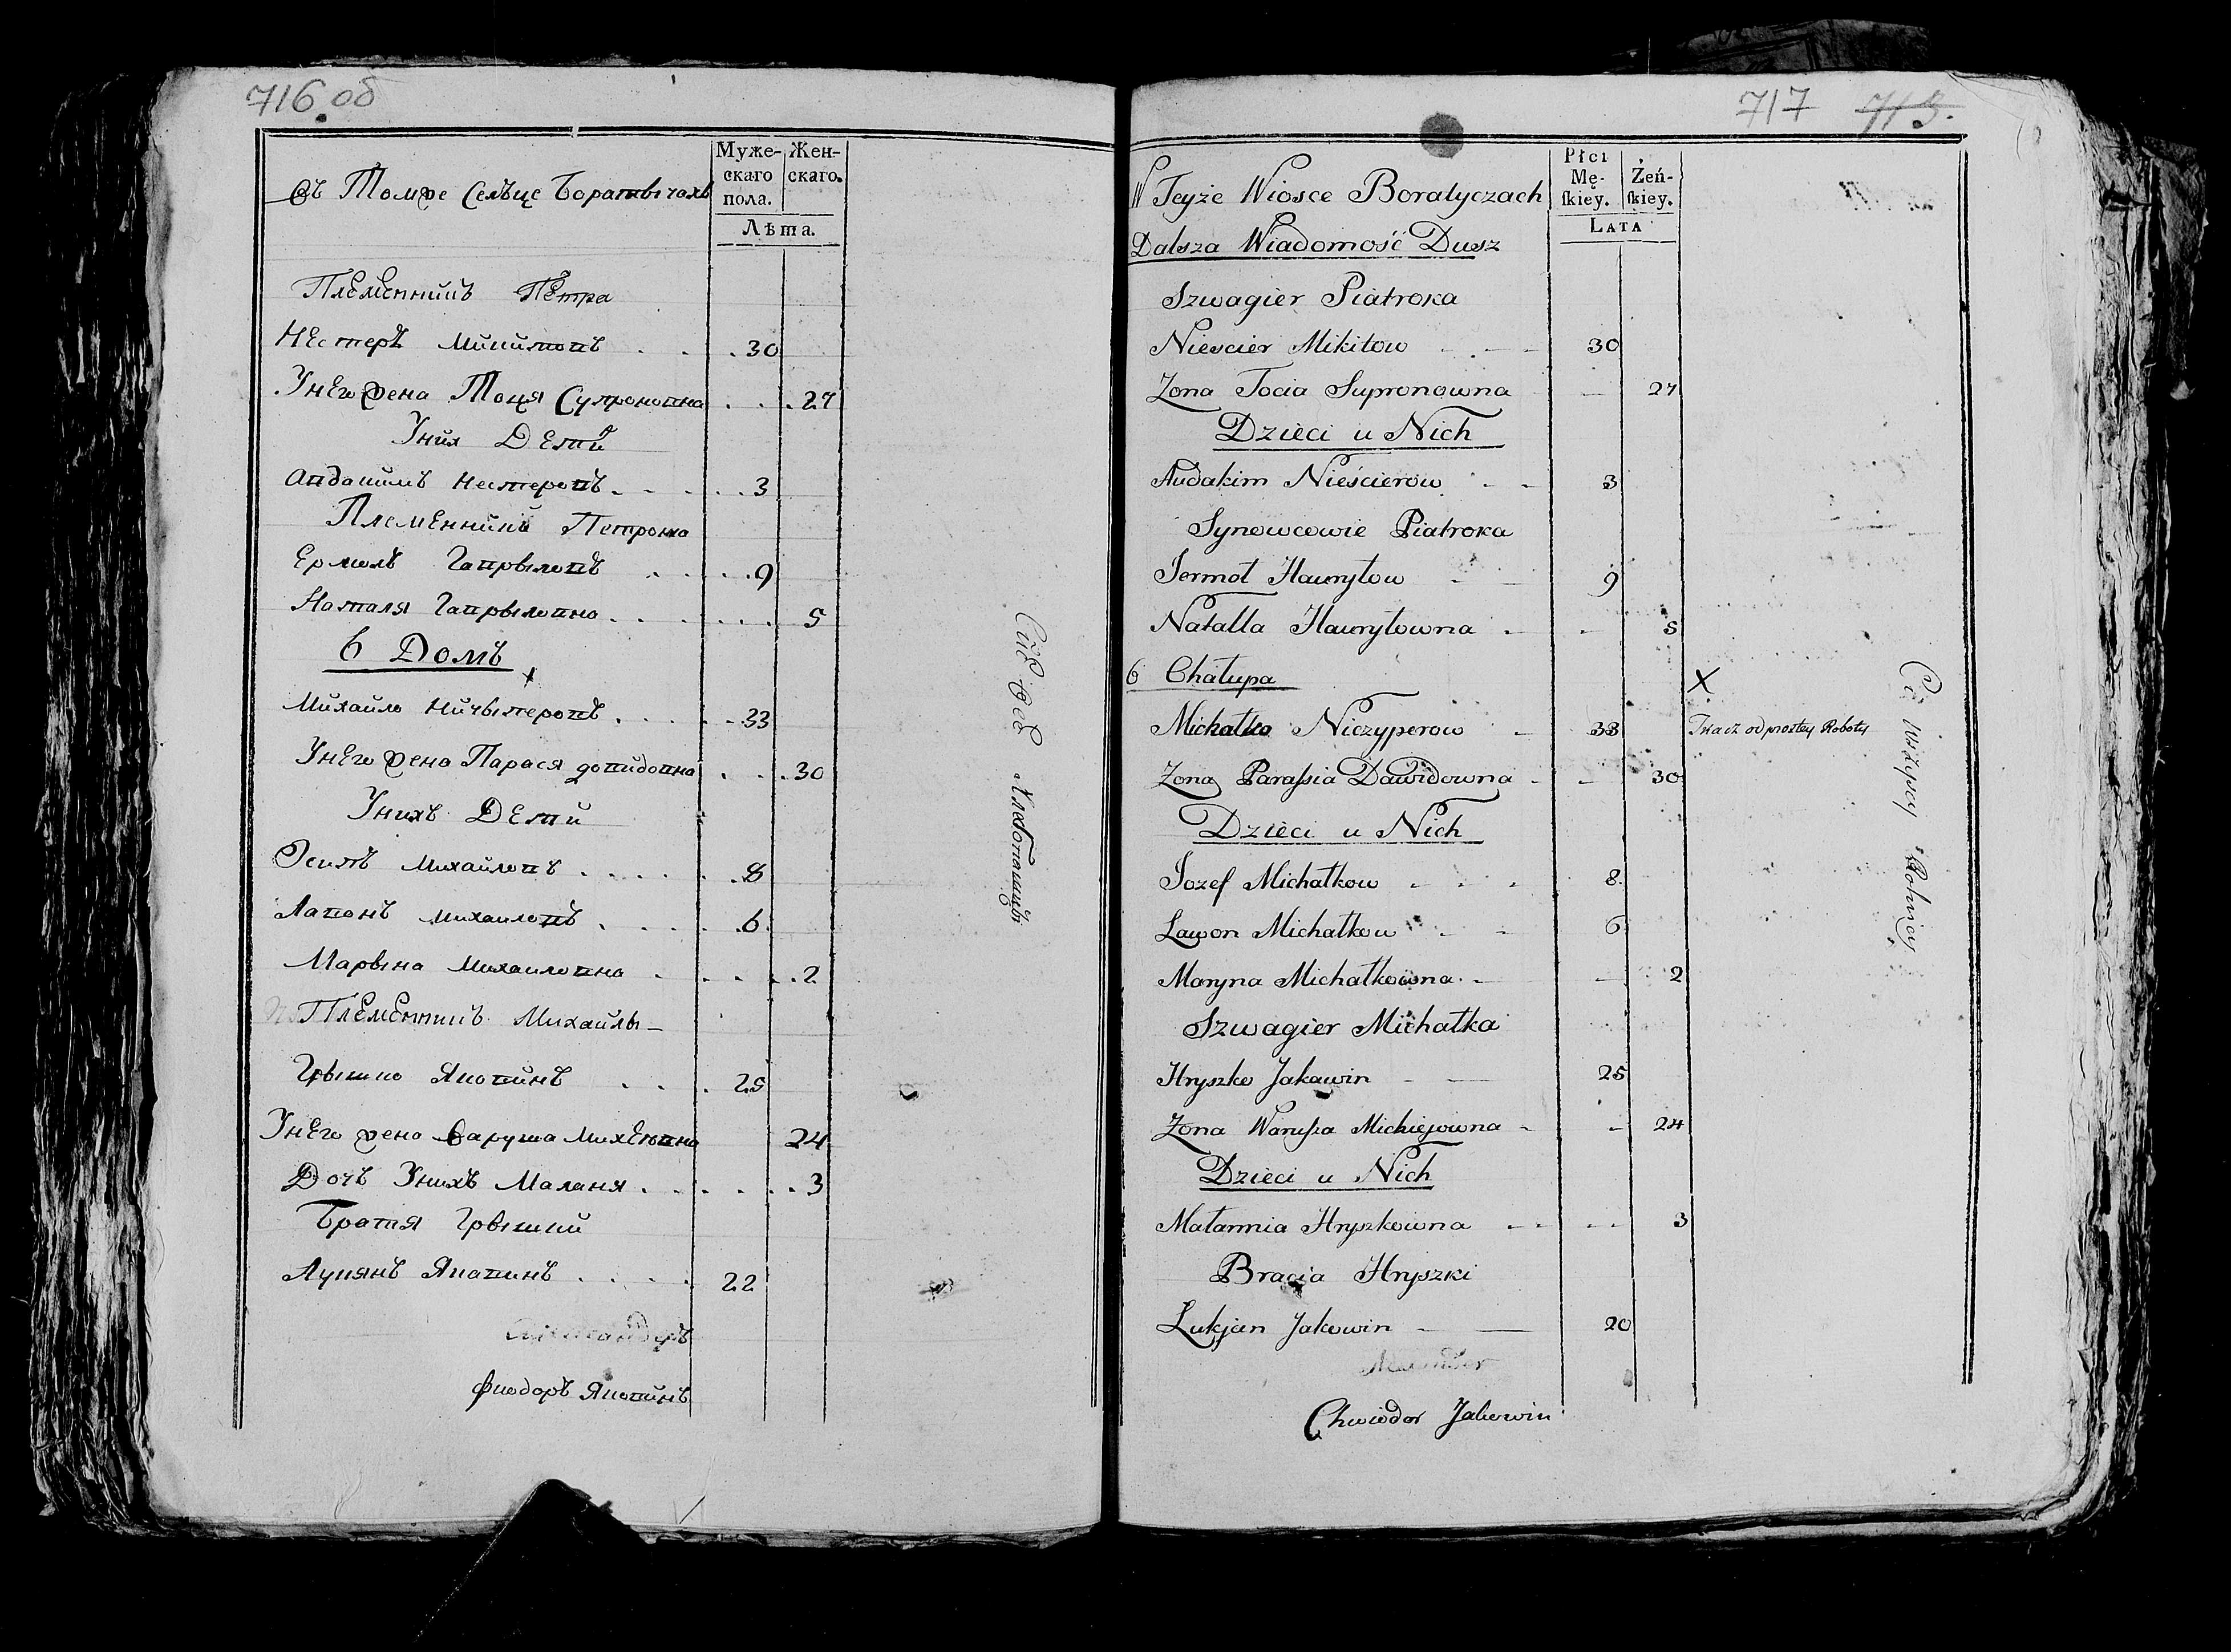 716 об
Муже-
скаго
пола.
Жен-
скаго.
Лѣта.
Въ Томже Селѣце Боратычахъ
Племенникъ Петра
Нестеръ Микитовъ 30
Унего жена Тоця Супроновна 27
Уних Дети
Авдакимъ Нестеровъ 3
Племенники Петрока
Ермолъ Гаврыловъ 9
Наталя Гаврыловна 5
6 Домъ
x
Михайло Ничыперовъ 33
Унего жена Парася довидовна 30
Унихъ Дети
Осипъ Михайловъ 8
Лавонъ Михаиловъ 6
Марына Михаиловна 2
Племенникъ Михайлы
Грышко Яковинъ 25
Унего жена Варуша Михеювна 24
Дочъ Унихъ Маланя 3
Братя Грышки
Лукянъ Яковинъ 22
Фиодоръ Яковинъ
717 713.
Płci
Mę-
ſkiey.
Żeń-
ſkiey.
LATA
W Teyże Wiosce Boratyczach
Dalsza Wiadomość Dusz
Szwagier Piatroka
Niescier Mikitow 30
Zona Tocia Supronowna 27
Dzieci u Nich
Audakim Nieścierow 3
Synowcowie Piatroka
Jermoł Hawryłow 9
Natalla Hawryłowna 5
6 Chałupa
X
Michałko Niczyperow 33 Tkacz od prostey Roboty
Zona Paraſsia Dawidowna 30
Dzieci u Nich
Jozef Michałkow 8
Lawon Michałkow 6
Maryna Michałkowna 2
Szwagier Michałka
Hryszko Jakowin 25
Zona Waruſza Michiejowna 24
Dzieci u Nich
Małannia Hryszkowna 3
Bracia Hryszki
Lukjan Jakowin 20
Chwiodor Jakowin
Ci Wszyscy Rolnicy